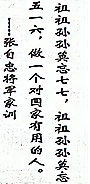 祖祖孙孙莫忘七七，祖祖孙孙莫忘
五一六，做一个对国家有用的人。
——张自忠将军家训